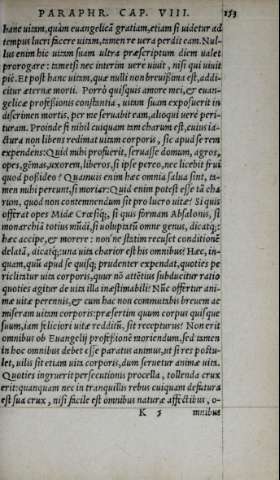 PARAPHR. CAP. VIII. 153
hanc uitam, quàm euangelicā gratiam, etiam si uidetur ad
tempus lucri facere uitam, tamen re uera perdit eam. Nul-
lus enim hic uitam suam ultra præscriptum diem ualet
prorogare: tametsi nec interim uere uiuit, nisi qui uiuit
piè. Et post hanc uitam, quæ nulli non breuissima est, addi-
citur æternæ morti. Porrò quisquis amore mei, & euan-
gelicæ professionis constantia, uitam suam exposuerit in
discrimen mortis, per me seruabit eam, alioqui uerè peri-
turam. Proinde si nihil cuiquam tam charum est, cuius ia-
ctura non libens redimat uitam corporis, sic apud se rem
expendens: Quid mihi profuerit, seruasse domum, agros,
opes, gēmas, uxorem, liberos, si ipse pereo, nec licebit frui
quod possideo? Quamuis enim hæc omnia salua sint, ta-
men mihi pereunt, si moriar: Quid enim potest esse tā cha
rum, quod non contemnendum sit pro lucro uitæ? Si quis
offerat opes Midæ Cræsiq́;, si quis formam Absalonis, si
monarchiā totius mūdi, si uoluptatū omne genus, dicatq́;:
hæc accipe, & morere: non'ne statim recuset conditionē
delatā, dicatq́;: una uita charior est his omnibus? Hæc, in-
quam, quū apud se quisq́; prudenter expendat, quoties pe
riclitatur uita corporis, quur nō attētius subducitur ratio
quoties agitur de uita illa inæstimabili? Nūc offertur ani-
mæ uitæ perennis, & cum hac non commutabis breuem ac
miseram uitam corporis: præsertim quum corpus quisque
suum, iam feliciori uitæ redditū, sit recepturus? Non erit
omnibus ob Euangelij professionē moriendum, sed tamen
in hoc omnibus debet esse paratus animus, ut si res postu-
let, uilis sit etiam uita corporis, dum seruetur animæ uita.
Quoties ingruerit persecutionis procella, tollenda crux
erit: quanquam nec in tranquillis rebus cuiquam defutura
est sua crux, nisi facile est omnibus naturæ affectibus, o-
K 5 mnibus